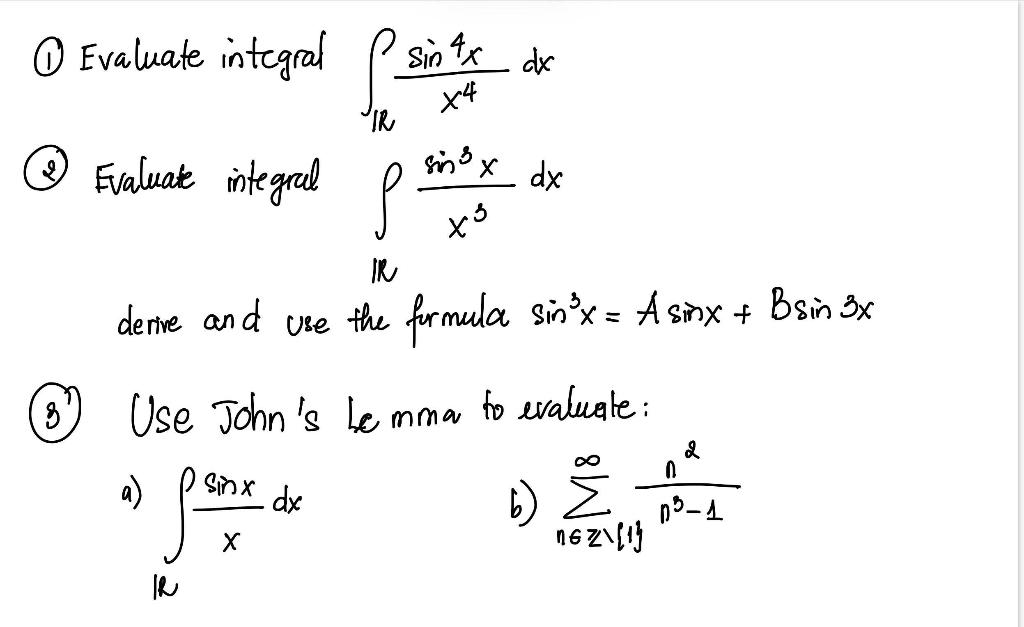 ① Evaluate integral ∫_ℝ sin⁴x / x⁴ dx
② Evaluate integral ∫_ℝ sin³x / x³ dx
derive and use the formula sin³x = A sinx + B sin 3x
③ Use John's Lemma to evaluate:
a) ∫_ℝ sinx / x dx b) ∑_{n∈ℤ\{1}}^∞ n² / (n³−1)